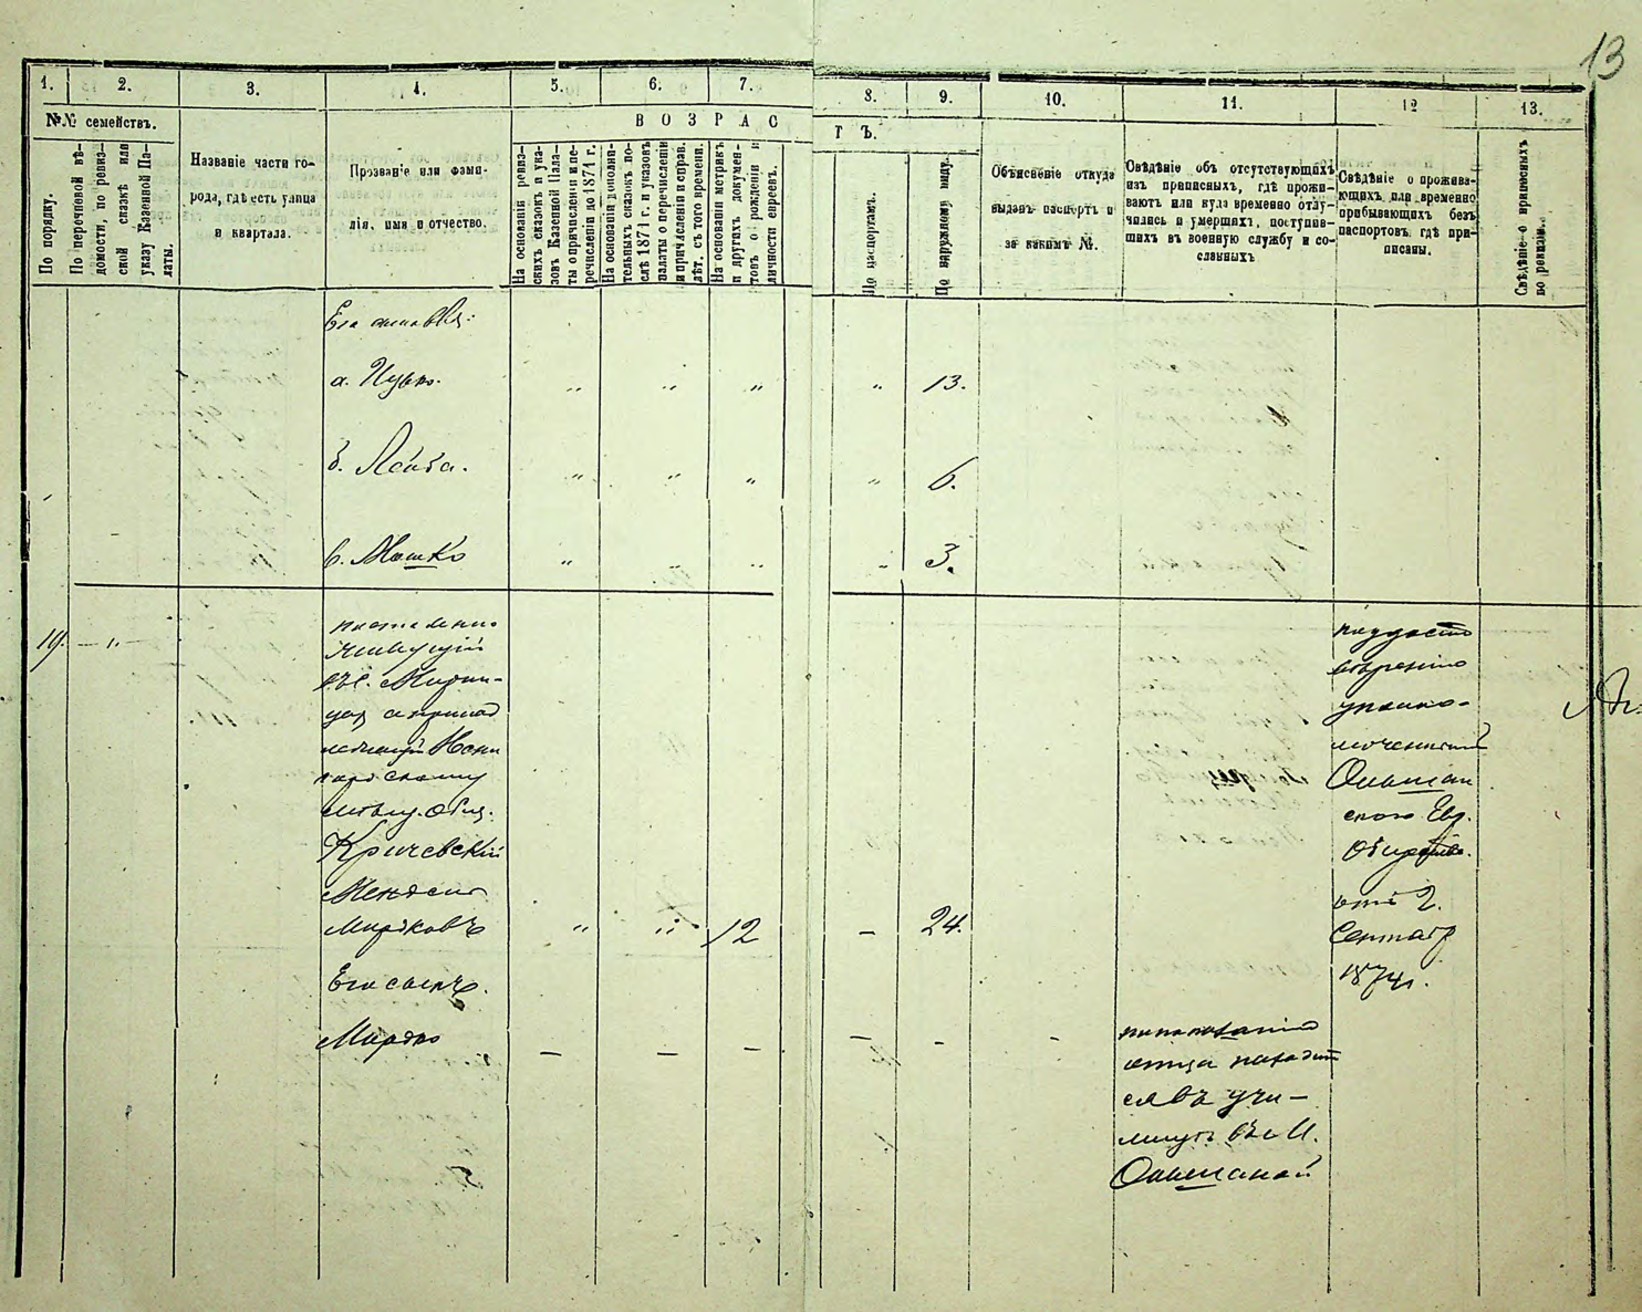 13
1. 2. 3. 4. 5. 6. 7. 8. 9. 10. 11. 12 13.
№№ семействъ.
По порядку.
По перечневой вѣ-
домости, по ревиз-
ской сказкѣ или
указу Казенной Па-
латы.
Названіе части го-
рода, гдѣ есть улица
и квартала.
Прозваніе или фами-
лія, имя и отчество.
ВОЗРАСТЪ.
На основаніи ревиз-
скихъ сказокъ и ука-
зовъ Казенной Пала-
ты о причисленіи и пе-
речисленіи до 1874 г.
На основаніи дополни-
тельныхъ сказокъ по-
слѣ 1874 г. и указовъ
палаты о перечисленіи
и причисленіи и справ.
лѣт. съ того времени.
На основаніи метрикъ
и другихъ докумен-
товъ о рожденіи и
личности евреевъ.
По паспортамъ.
По наружному виду.
Объясненіе откуда
выданъ паспортъ и
за какимъ №.
Свѣдѣніе объ отсутствующихъ
изъ приписныхъ, гдѣ прожи-
ваютъ или куда временно отлу-
чились и умершихъ, поступив-
шихъ въ военную службу и со-
сланныхъ
Свѣдѣніе о прожива-
ющихъ или временно
прибывающихъ безъ
паспортовъ гдѣ при-
писаны.
Свѣдѣніе о приписныхъ
по ревизіи.
Его сыновья:
а. Ицько. „ „ „ „ 13.
б. Лейба. „ „ „ „ 6.
в. Мошко „ „ „ „ 3.
19. — „ —
постоянно
живущій
въ с.
Кричевскій
Мендель
Мордковъ „ „ 12 — 24.
Его сынъ.
Мордко — — — — — —
отца находит
ся въ учи-
лищѣ въ М.
Ольшаной
по удосто
веренію
уполно-
моченнаго
Ольшан
скаго Евр.
Общества.
отъ 2.
Сентябр
1874 г.